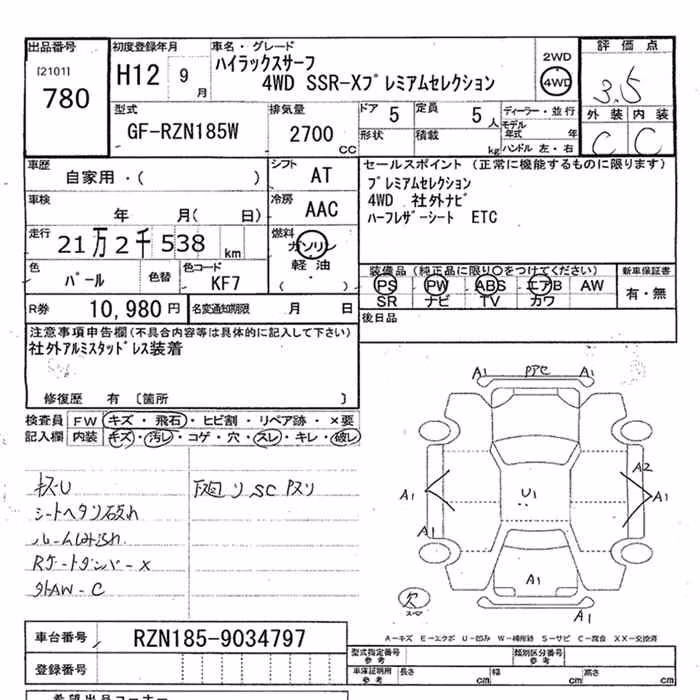 出品番号 初度登録年月 車名・グレード 2WD 評価点
[2101] 780 H12 9月 ハイラックスサーフ 4WD 3.5
4WD SSR-Xプレミアムセレクション
型式 排気量 ドア 5 定員 5人 ディーラー・並行 外装 内装
GF-RZN185W 2700cc 形状 積載 kg モデル年式 年 C C
ハンドル 左・右
車歴 シフト セールスポイント (正常に機能するものに限ります)
自家用・( ) AT プレミアムセレクション
車検 冷房 4WD 社外ナビ
年 月( 日) AAC ハーフレザーシート ETC
走行 燃料
21万2千538km ガソリン
軽油
・( )
色 色替 色コード 装備品(純正品に限り○をつけてください) 新車保証書
パール KF7 PS PW ABS エアB AW 有・無
SR ナビ TV カワ
R券 10,980円 名変通知期限 月 日 後日品
注意事項申告欄(不具合内容等は具体的に記入して下さい)
社外アルミスタッドレス装着
修復歴 有 [箇所 ]
検査員 FW キズ・飛石・ヒビ割・リペア跡・×要
記入欄 内装 キズ・汚レ・コゲ・穴・スレ・キレ・破レ
A1 A1
シートヘタリ破れ
ルームしみ汚れ
RゲートダンパーX
外AW-C
A1 A2
U1 A1
A1
A1
欠
A1
A-キズ E-エクボ U-凹み W-補修跡 S-サビ C-腐食 XX-交換済
車台番号 RZN185-9034797
型式指定番号 参考 類別区分番号 参考
登録番号 車体証明用 参考 長さ cm 幅 cm 高さ cm
希望出品コーナー